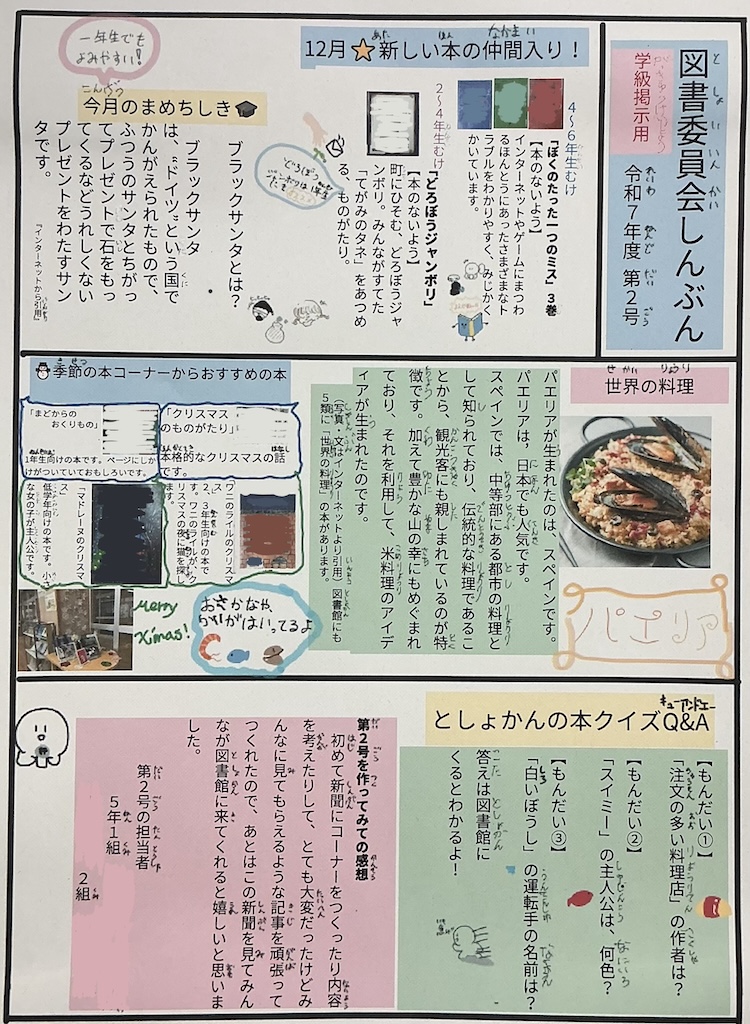 図書委員会しんぶん
学級掲示用
令和７年度 第２号
12月⭐新しい本の仲間入り！
４～６年生むけ
「ぼくのたった一つのミス」３巻
【本のないよう】
インターネットやゲームにまつわ
るほんとうにあったさまざまなト
ラブルをわかりやすく、みじかく
かいています。
２～４年生むけ
「どろぼうジャンボリ」
【本のないよう】
町にひそむ、どろぼうジャ
ンボリ。みんながすてた
「てがみのタネ」をあつめ
る、ものがたり。
一年生でも
よみやすい！
今月のまめちしき🎓
ブラックサンタとは？
ブラックサンタ
は、“ドイツ”という国で
かんがえられたもので、
ふつうのサンタとちがっ
てプレゼントで石をもっ
てくるなどうれしくない
プレゼントをわたすサン
タです。
『インターネットから引用』
世界の料理
パエリア
パエリアが生まれたのは、スペインです。
パエリアは、日本でも人気です。
スペインでは、中等部にある都市の料理と
して知られており、伝統的な料理であるこ
とから、観光客にも親しまれているのが特
徴です。加えて豊かな山の幸にもめぐまれ
ており、それを利用して、米料理のアイデ
ィアが生まれたのです。
（写真・文はインターネットより引用）図書館にも
５類に「世界の料理」の本があります。
⛄季節の本コーナーからおすすめの本
「まどからの
おくりもの」
1年生向けの本です。ページにしか
けがついていておもしろいです。
「クリスマス
のものがたり」
本格的なクリスマスの話
です。
「マドレーヌのクリスマ
ス」
低学年向けの本です。小さ
な女の子が主人公です。
「ワニのライルのクリスマ
ス」
２、３年生向けの本で
す。ワニのライルが、ク
リスマスの夜に猫を探し
ます。
Merry
X'mas!
おさかなや、
かいがはいってるよ
としょかんの本クイズQ&A
【もんだい①】
「注文の多い料理店」の作者は？
【もんだい②】
「スイミー」の主人公は、何色？
【もんだい③】
「白いぼうし」の運転手の名前は？
答えは図書館に
くるとわかるよ！
第２号を作ってみての感想
初めて新聞にコーナーをつくったり内容
を考えたりして、とても大変だったけどみ
んなに見てもらえるような記事を頑張って
つくれたので、あとはこの新聞を見てみん
なが図書館に来てくれると嬉しいと思いま
した。
第２号の担当者
５年１組
２組